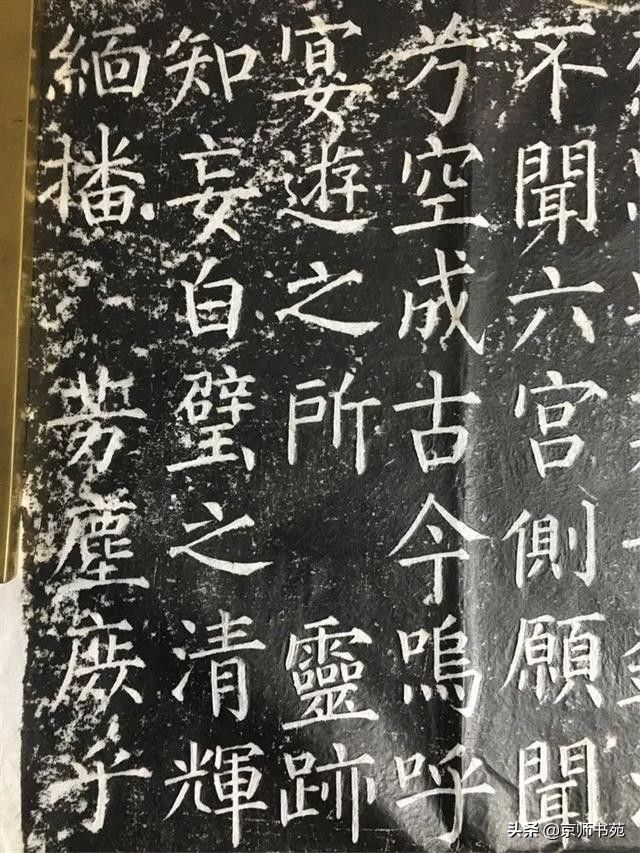 不聞六宮側願聞
芳空成古今嗚呼
宴遊之所靈跡
知妄自璧之清輝
緬播芳塵庶乎
头条@京师书苑